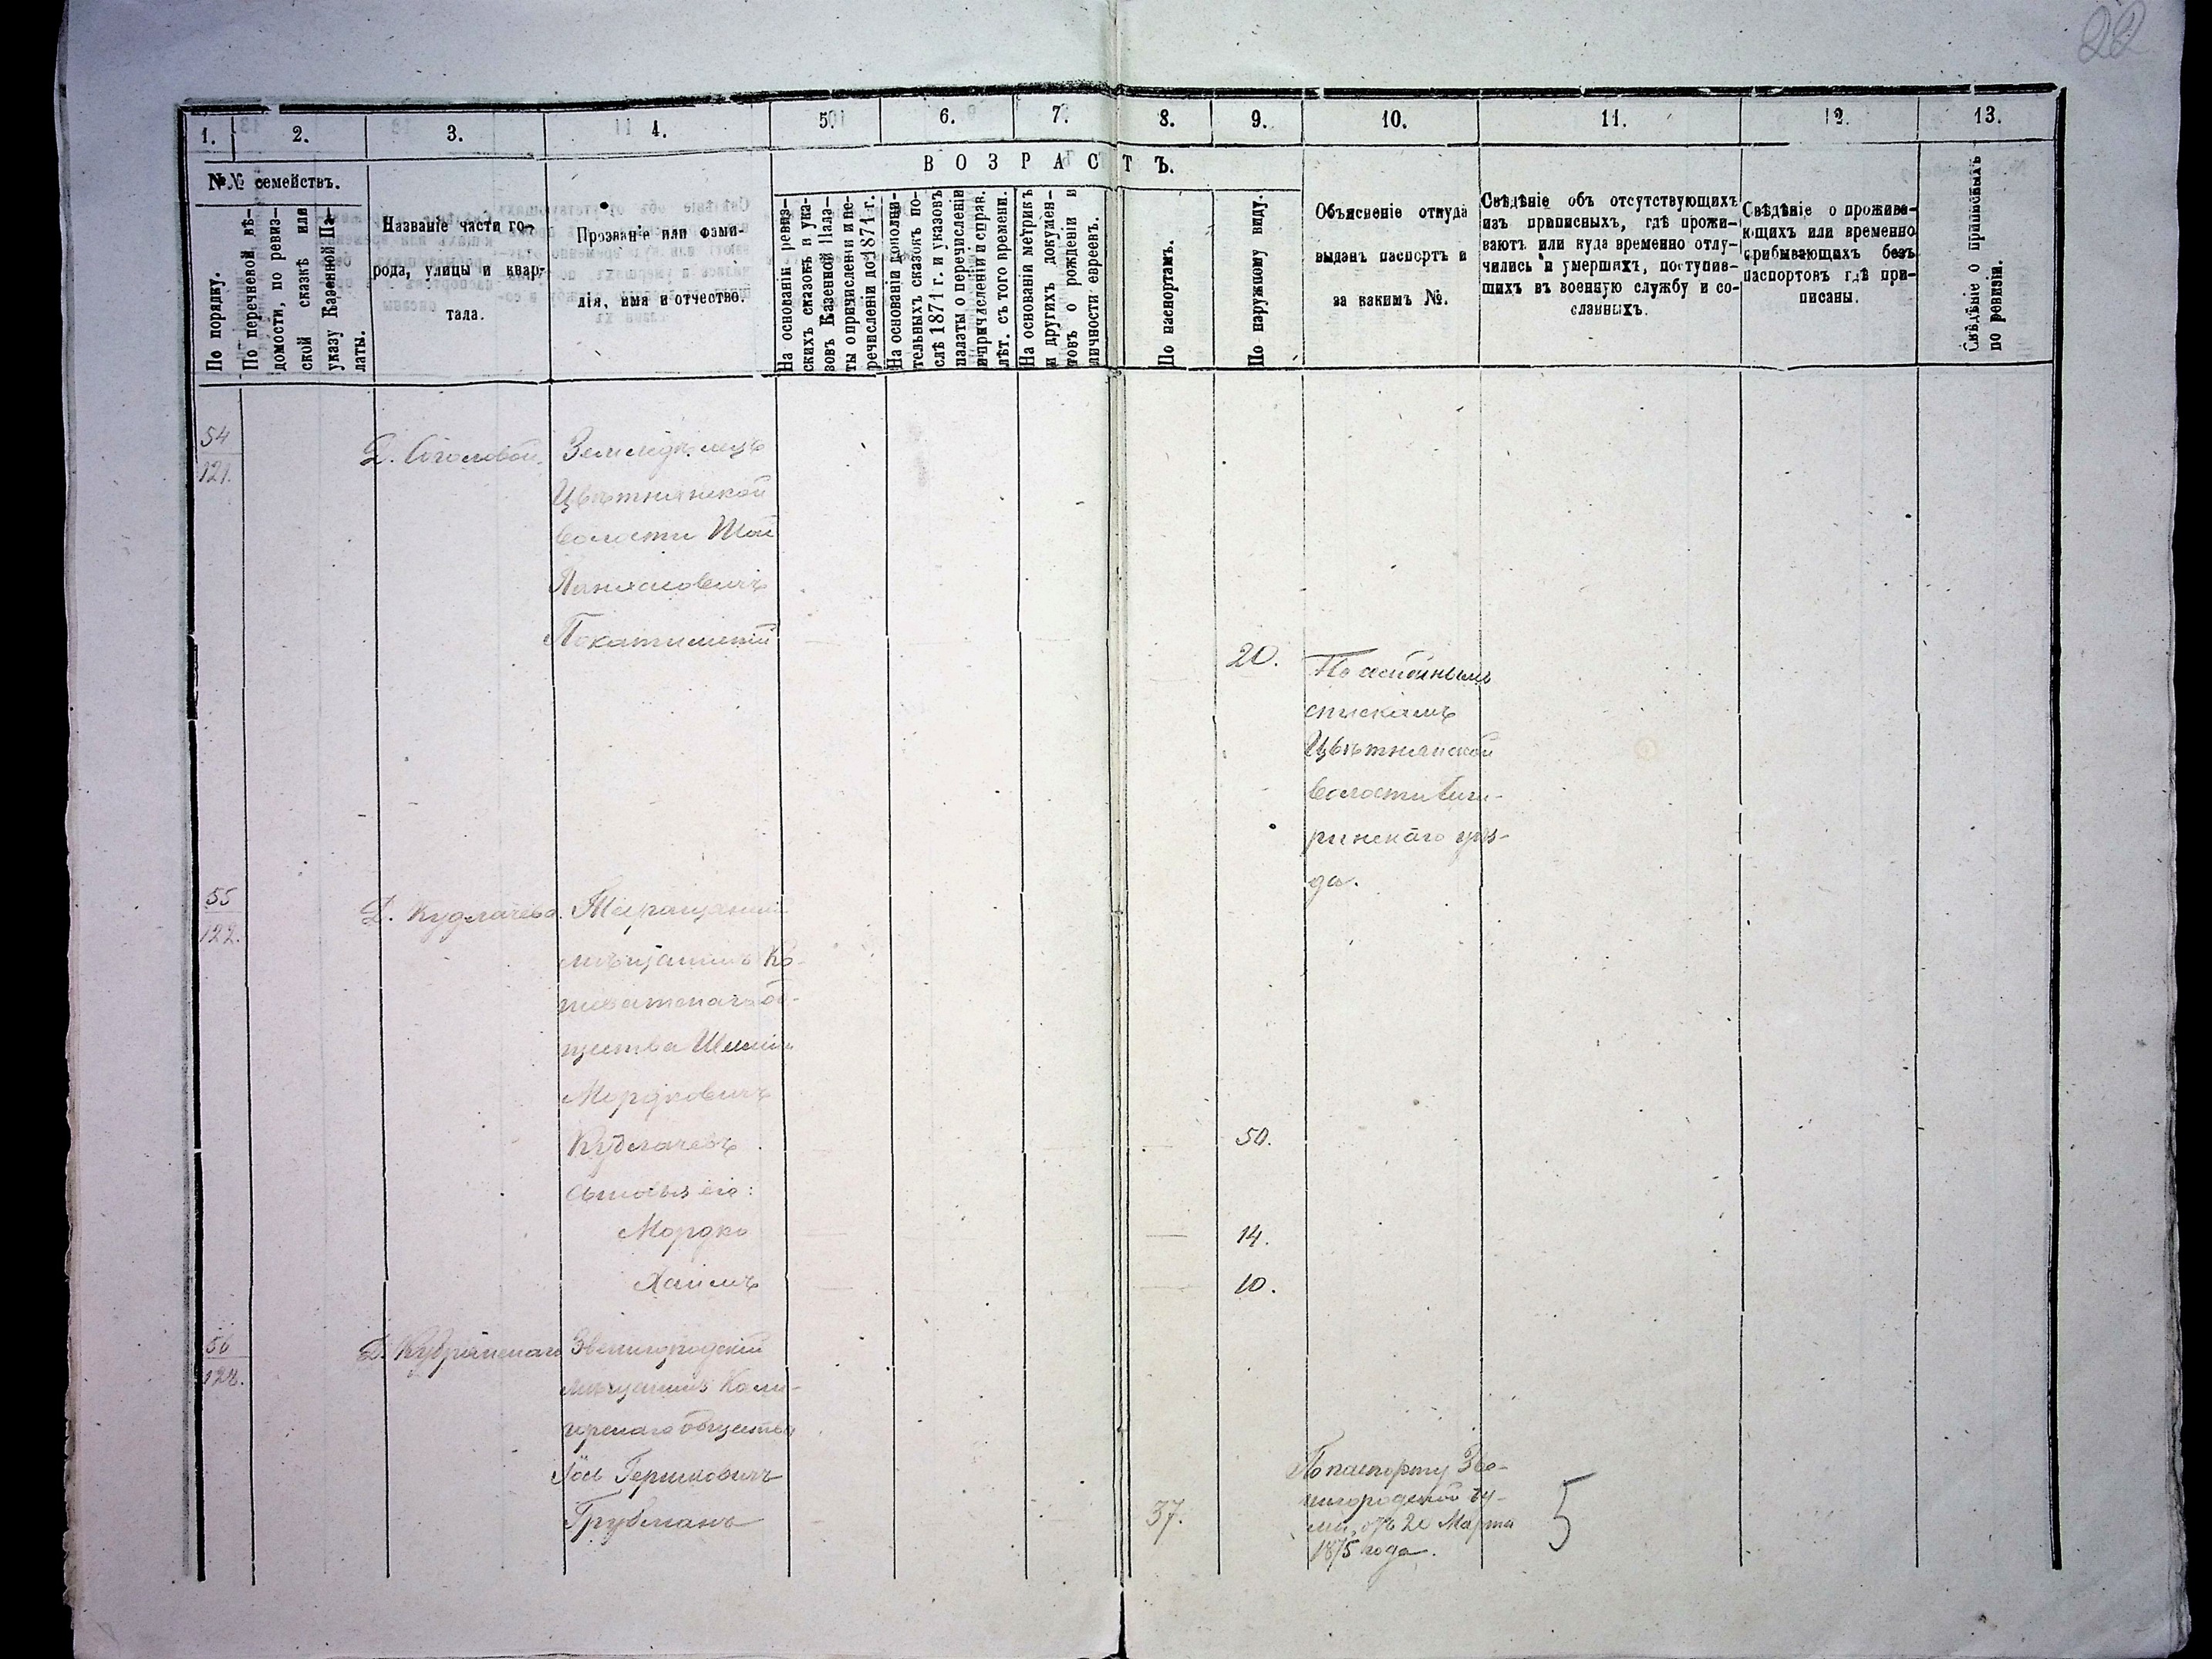 22
1. 2. 3. 4. 5. 6. 7. 8. 9. 10. 11. 12. 13.
№№ семействъ.
В О З Р А С Т Ъ.
По порядку.
По перечневой вѣ-
домости, по ревиз-
ской сказкѣ или
указу Казенной Па-
латы.
Названіе части го-
рода, улицы и квар-
тала.
Прозваніе или фами-
лія, имя и отчество.
На основаніи ревиз-
скихъ сказокъ и ука-
зовъ Казенной Пала-
ты о причисленіи и пе-
речисленіи до 1871 г.
На основаніи дополни-
тельныхъ сказокъ по-
слѣ 1871 г. и указовъ
палаты о перечисленіи
и причисленіи и справ.
лѣт. съ того времени.
На основаніи метрикъ
и другихъ докумен-
товъ о рожденіи и
личности евреевъ.
По паспортамъ.
По наружному виду.
Объясненіе откуда
выданъ паспортъ и
за какимъ №.
Свѣдѣніе объ отсутствующихъ
изъ приписныхъ, гдѣ прожи-
ваютъ или куда временно отлу-
чились и умершихъ, поступив-
шихъ въ военную службу и со-
сланныхъ.
Свѣдѣніе о прожива-
ющихъ или временно
прибывающихъ безъ
паспортовъ гдѣ при-
писаны.
Свѣдѣніе о приписныхъ
по ревизіи.
54
121.
Д.
Цвѣтнянской
волости
Покатиловскій
20.
спискамъ
Цвѣтнянской
волости Чиги-
ринскаго уѣз-
да.
55
122.
Д. Кудлачева.
Таращанскій
мѣщанинъ
щества
Мордковичъ
Кудлачевъ
50.
сыновья его:
Мордко
14.
Хаимъ
10.
56
Д.
Звенигородскій
мѣщанинъ
общества
Іось Гершковичъ
37.
По паспорту Зве-
нигородской Ду-
мы, отъ 20 Марта
1875 года.
5